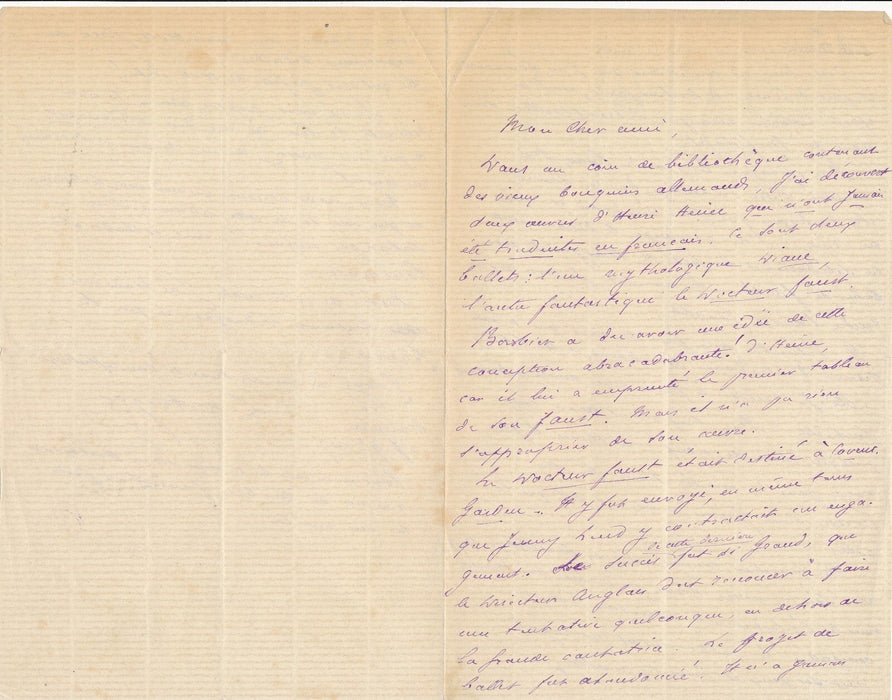 Mon Cher ami,
Dans un coin de bibliothèque contenant
des vieux bouquins allemands, J'ai découvert
deux œuvres d'Henri Heine qui n'ont Jamais
été traduites en français. Ce sont deux
ballets; l'un mythologique Diane,
l'autre fantastique le Docteur Faust.
Barbier a du avoir une idée de cette
conception abracadabrante! d'Heine,
car il lui a emprunté le premier tableau
de son Faust. Mais il n'a pu rien
s'approprier de son œuvre.
Le Docteur Faust était destiné à Covent
Garden. Il y fut envoyé, en même tems
que Jenny Lind y contractait un enga-
gement. Le succès de cette dernière fut si Grand, que
le Directeur Anglais dut renoncer à faire
une tentative quelconque, en dehors de
la grande cantatrice. Le projet de
ballet fut abandonné! Il n'a Jamais